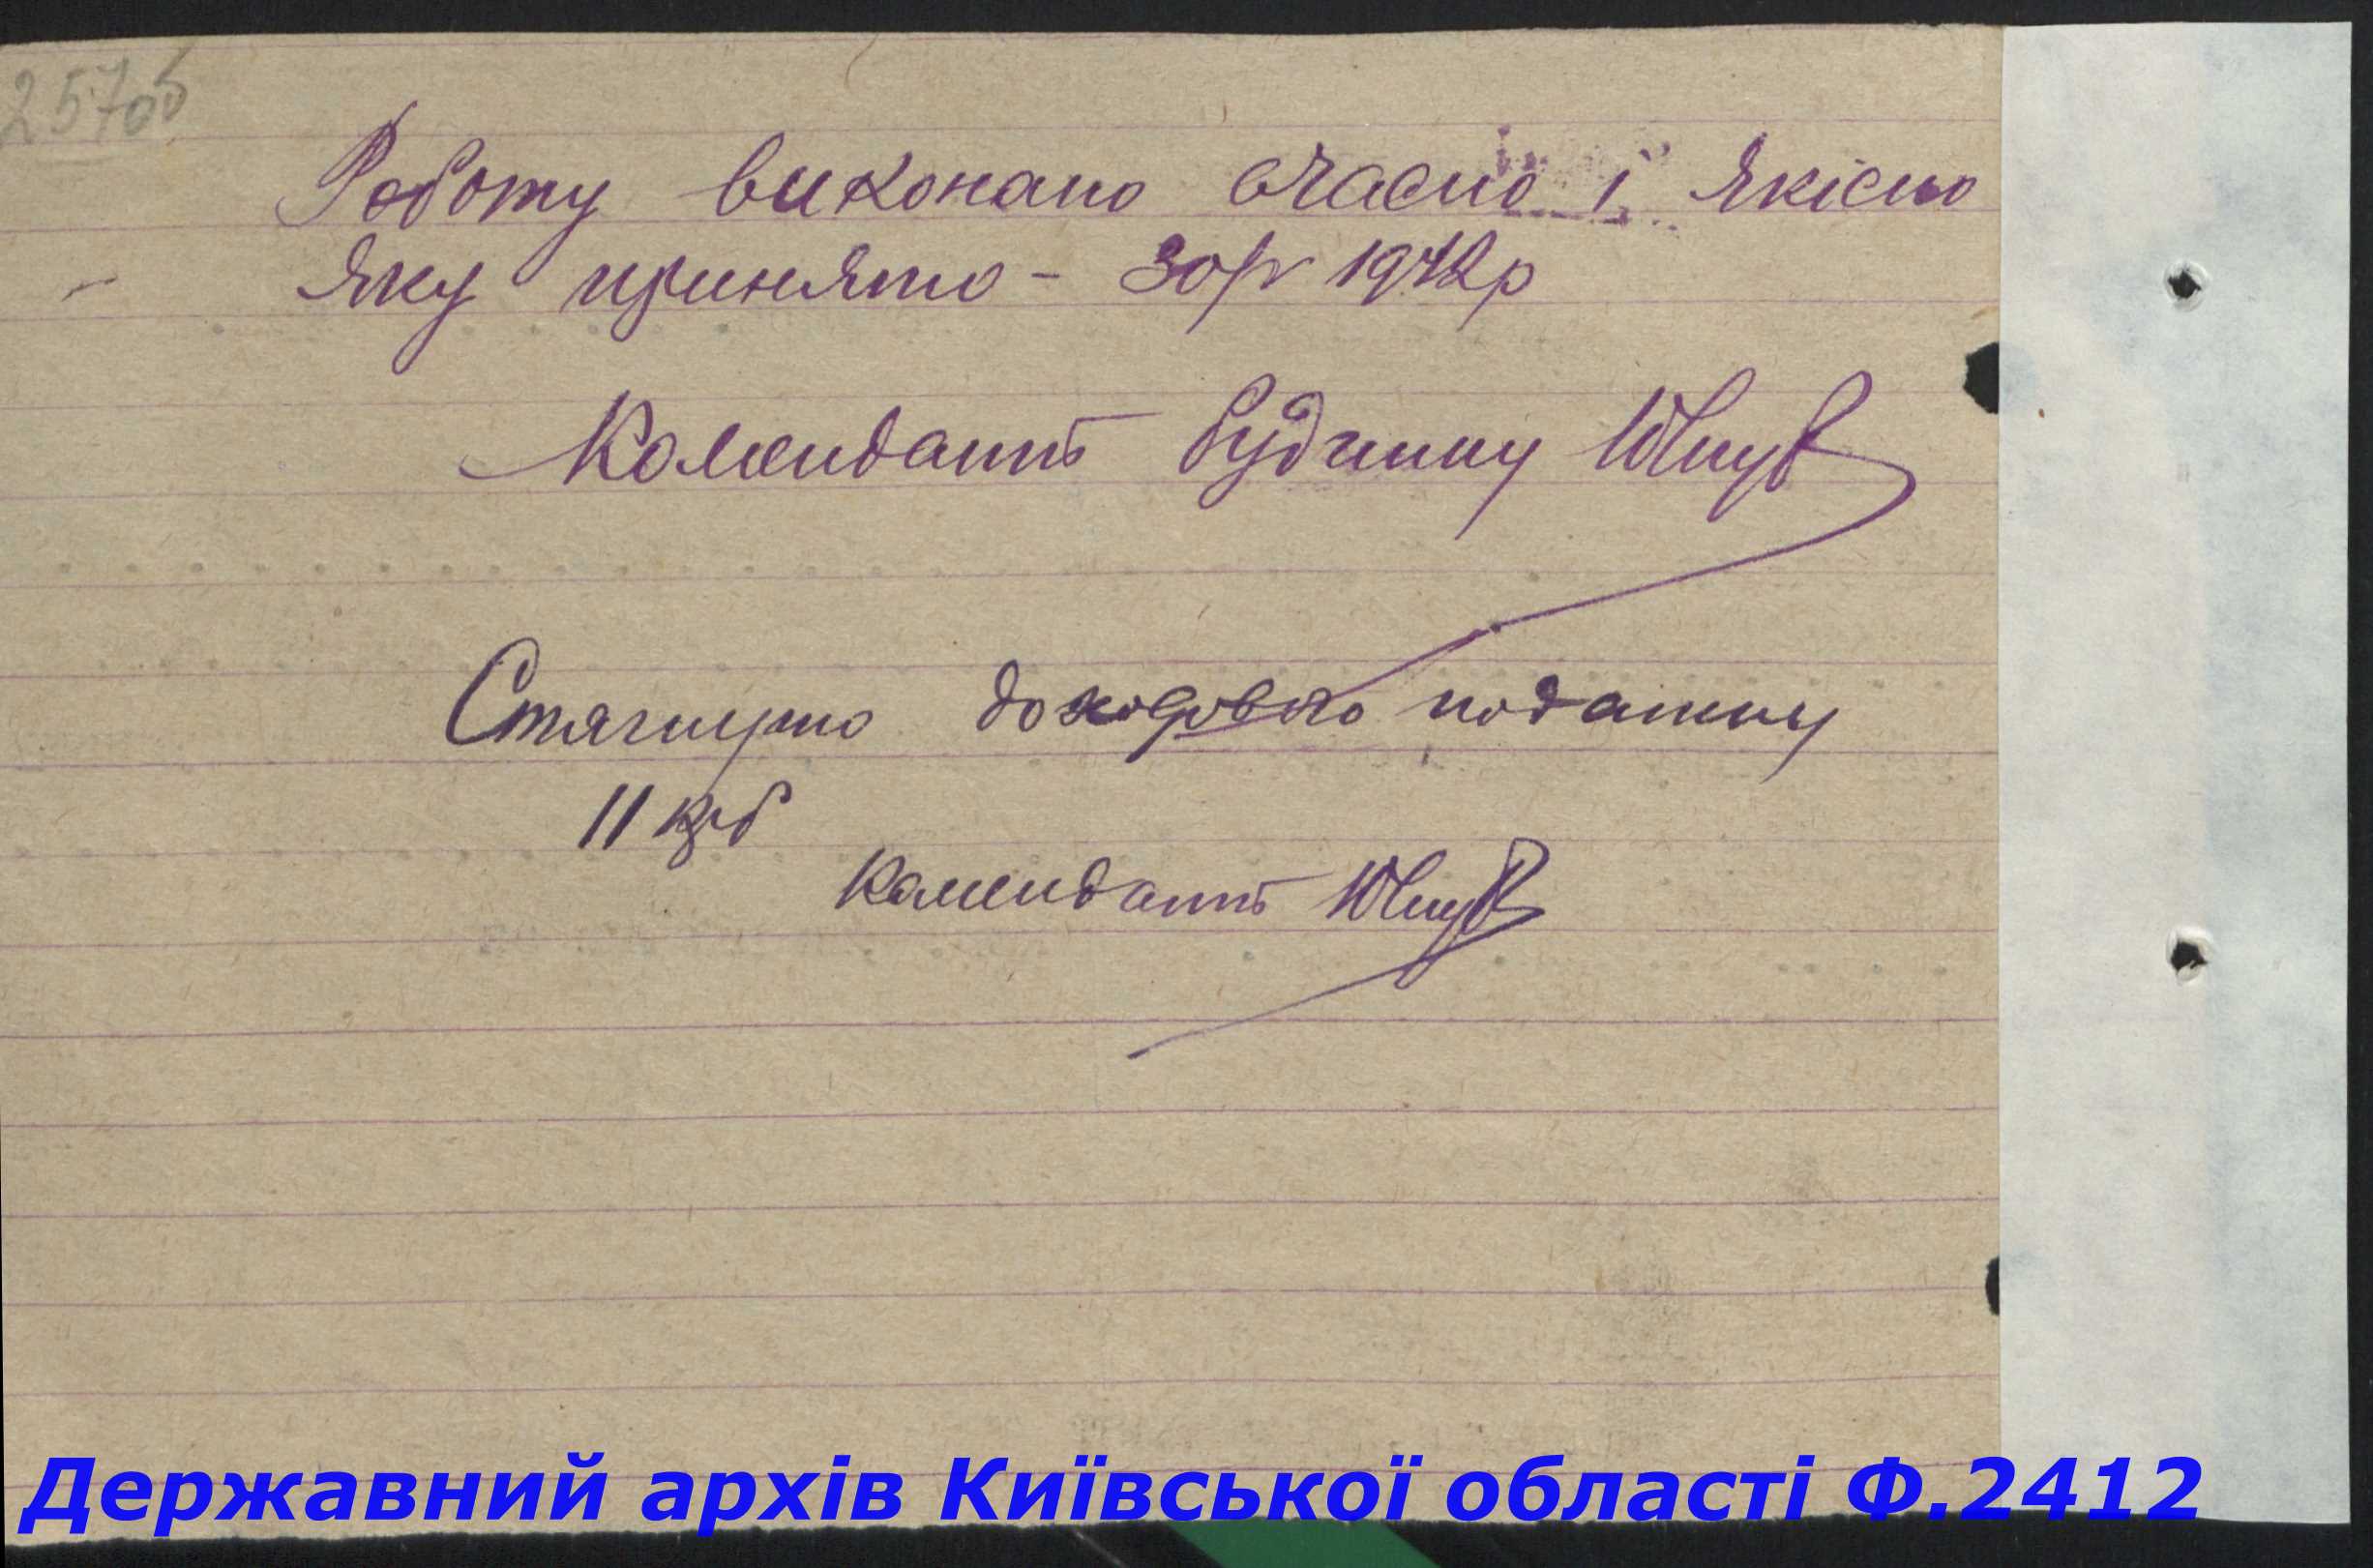 257об
Роботу виконано вчасно і якісно
яку принято - 1942р
Комендант будинку
Стягнуто доходового податку
11 крб
Комендант
Державний архів Київської області Ф.2412